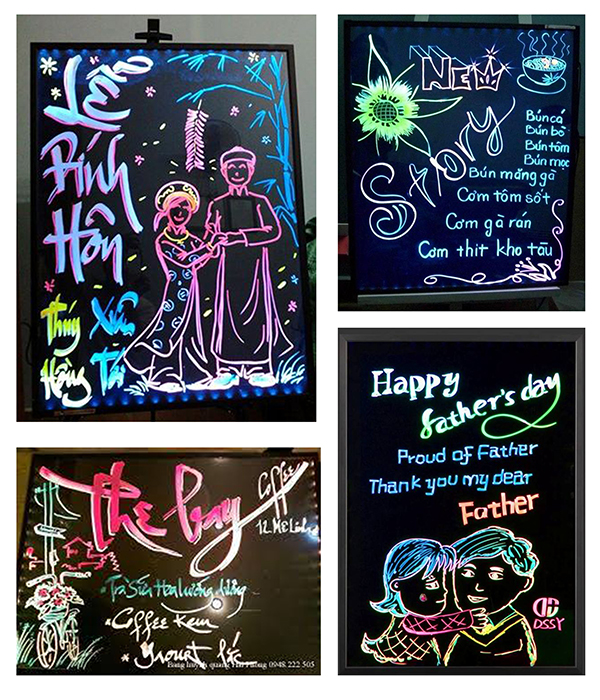 Lễ
Đính
Hôn
Thúy Xuân
Hồng Tài
NEW
Story
Bún cá
Bún bò
Bún tôm
Bún mọc
Bún măng gà
Cơm tôm sốt
Cơm gà rán
Cơm thịt kho tàu
the bay
Coffee
12 Mê Linh
Trà Sữa Hoa hướng dương
Coffee Kem
Yaourt
Bảng huỳnh quang Hải Phòng 0948 222 505
Happy
father's day
Proud of Father
Thank you my dear
Father
DSSY